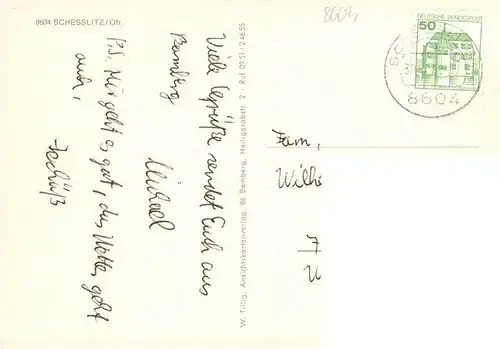 8604 SCHESSLITZ/Ofr.
8604
DEUTSCHE BUNDESPOST
50
8604
Viele Grüße sendet Euch aus
Bamberg
Michael
PS. Mir geht's gut, das Wetter geht
auch,
Tschüß
W. Tillig, Ansichtskartenverlag, 86 Bamberg, Heiliggrabstr. 2 · Ruf 0951/24635
Fam.